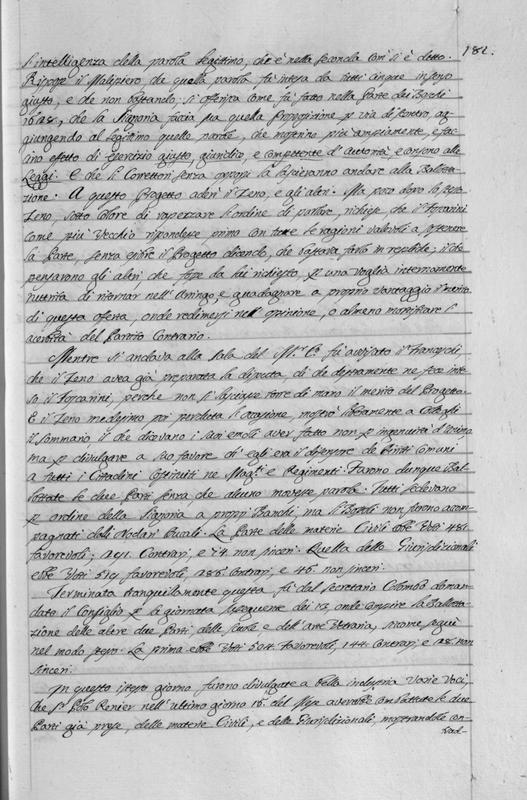 182.
l'intelligenza della parola legittimo, che è nella seconda com' si è detto.
Rispose il Malipiero, che quella parola fù intesa da tutti cinque in senso
giusto, e che non bastando, si offeriva come fù fatto nella Parte dei Banchi
1628, che la Signoria faccia sua quella Proposizione p via di scontro, ag-
giungendo al legittimo quelle parole, che mostrino più ampiamente, e fac-
cino effetto di esercizio giusto, giuridico, e competente d'autorità, e conforme alle
Leggi. E che li Correttori senza opporsi la lascieranno andare alla Ballotta-
zione. A questo Progetto aderì il Zeno, e gli altri. Mà poco dopo lo stesso
Zeno, sotto colore di rapezzare l'ordine di parlare, richiese, che il Foscarini
come più Vecchio rispondesse primo con tutte le ragioni valevoli a sostenere
la Parte, senza esibire il Progetto dicendo, che bastava farlo in replica; il che
pensarono gli altri che fosse da lui richiesto, p una voglia internamente
nutrita di ritornar nell' Aringo, e guadagnare a proprio vantaggio il merito
di questa offerta, onde redimersi nell' opinione, o almeno mortificare l'
acerbità del Partito Contrario.
Mentre si andava alla Sala del M.r C.o fù avvisato il Franceschi,
che il Zeno avea già preparata la disputa, di che destramente ne fece inte-
so il Foscarini, perche non si lasciasse torre di mano il merito del Progetto.
E il Zeno medesimo poi perduta l'occasione, mostrò liberamente a Colleghi
il Sommario, il che dicevano i suoi emoli aver fatto non p ingenuità d'animo
ma p divulgare a suo favore ch' egli era il difensore de Partiti comuni
a tutti i Cittadini Costituiti ne Mag.ti e Regimenti. Furono dunque Bal-
lottate le due Parti senza, che alcuno movesse parola. Tutti sedevano
p ordine della Signoria a proprj Banchi, ma i Bossoli non furono accom-
pagnati dali Nodari Ducali. La Parte delle materie Civili ebbe Voti 481.
favorevoli; 291. Contrarj, e 74 non sinceri. Quella delle Giurisdizionali
ebbe Voti 519 favorevoli, 286 Contrarj, e 46. non sinceri.
Terminata tranquillamente questa fù dal secretario Colombo doman-
dato il Consiglio p la giornata susseguente dei 12, onde compire la Ballotta-
zione delle altre due Parti, delle Scole, e dell' arte Vetraria, sicome seguì
nel modo stesso. La prima ebbe Voti 504. favorevoli, 144. Contrarj, e 128. non
sinceri.
In questo istesso giorno furono divulgate a bella industria varie Voci,
che s. Polo Renier nell' ultimo giorno 15. del Mese averebbe combattute le due
Parti già prese, delle materie Civili, e delle Giurisdizionali, mostrandole con-
trad-